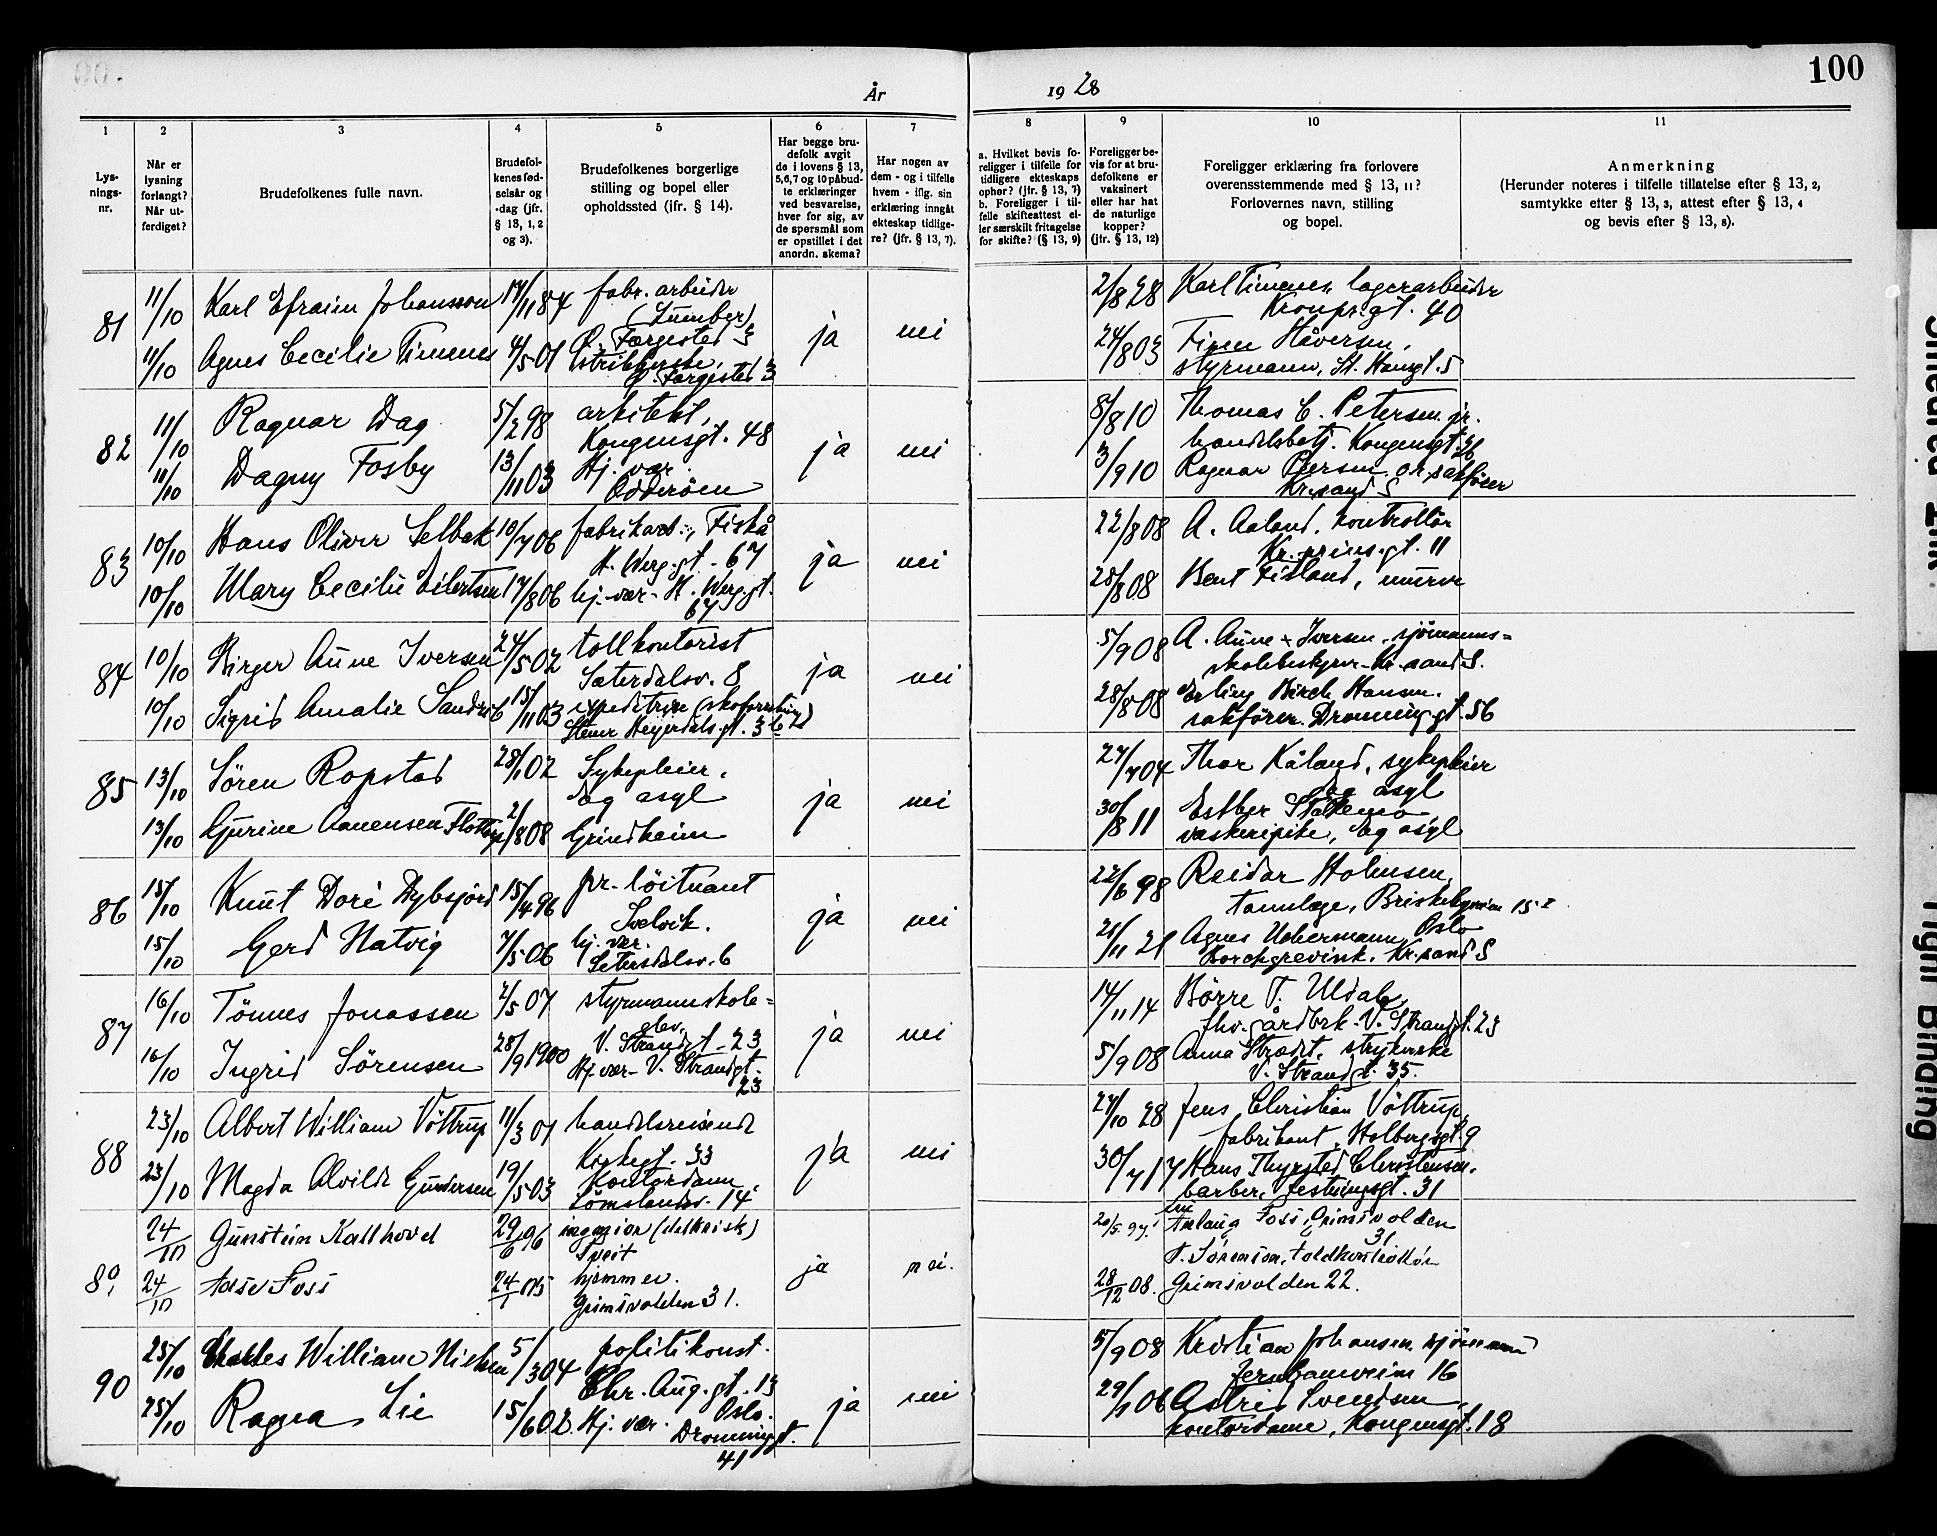 100
År
19 28
1
2
3
4
5
6
7
8
9
10
11
Lys-
nings-
nr.
Når er
lysning
forlangt?
Når ut-
ferdiget?
Brudefolkenes fulle navn.
Brudefol-
kenes fød-
selsår og
-dag (jfr.
§ 13, 1, 2
og 3).
Brudefolkenes borgerlige
stilling og bopel eller
opholdssted (ifr. § 14).
Har begge bru-
defolk avgit
de i lovens § 13,
5,6,7 og 10 påbud-
te erklæringer
ved besvarelse,
hver for sig, av
de spørsmål som
er opstillet i det
anordn. skema?
Har nogen av
dem - og i tilfelle
hvem - iflg. sin
erklæring inngåt
ekteskap tidlige-
re? (jfr. § 13, 7).
a. Hvilket bevis fo-
religger i tilfelle for
tidligere ekteskaps
ophør? (jfr. § 13, 7)
b. Foreligger i til-
felle skifteattest el-
ler særskilt fritagelse
for skifte? (§ 13, 9)
Foreligger be-
vis for at bru-
defolkene er
vaksinert
eller har hat
de naturlige
kopper?
(jfr. § 13, 12)
Foreligger erklæring fra forlovere
overensstemmende med § 13, 11?
Forlovernes navn, stilling
og bopel.
Anmerkning
(Herunder noteres i tilfelle tillatelse efter § 13, 2,
samtykke efter § 13, 3, attest efter § 13, 4
og bevis efter § 13, 8).
81
11/10 Karl Efraim Johansson 17/11 84 fabr. arbeider
(Lumber)
Ø. Færgested 3
11/10 Agnes Cecilie Timenes 4/5 01
Ø. Færgested 3
ja
nei
2/8 28 Karl Timenes, lagerarbeider
Kronpr.gt. 40
24/8 03 Finn Håversen,
styrmann, St. Hansgt. 5
82
11/10 Ragnar Dag 5/2 98 arkitekt,
Kongensgt. 48
11/10 Dagny Fosby 13/11 03 Hj. vær.
Odderöen
ja
nei
8/8 10 Thomas C. Petersen jr.
handelsbetj. Kongensgt.
3/9 10 Ragnar
Kr.sand S
83
10/10 Hans Oliver Selbak 10/7 06 fabrikarb., Fiskå
H. Werg.gt. 67
10/10 Mary Cecilie Eilertsen 17/8 06 hj. vær- H. Werg.gt.
67
ja
nei
22/8 08 A. Aaland, kontrollör
Kr. prins.gt. 11
28/8 08 Bent Fidland, murer
84
10/10 Birger Aune Iversen 24/5 02 tollkontorist
Sæterdalsv. 8
10/10 Sigrid Amalie Sandvik 15/11 03 expeditrise (skoforretning)
Stener Heyerdals.gt. 36
ja
nei
5/9 08 A. Aune Iversen, sjömanns=
skolebestyrer- Kr.sand S.
28/8 08 Erling Birch Hansen.
sakförer. Dronning.gt. 56
85
13/10 Sören Ropstad 28/1 02 Sykepleier.
Eg asyl
13/10 Gjurine Aanensen Flottorp 2/8 08 Grindheim
ja
nei
27/7 04 Thor Kåland, sykepleier
Eg asyl
30/8 11 Esther
vaskeripike, Eg asyl
86
15/10 Knut Doré Dybsjord 15/4 96 pr. löitnant
Svelvik.
15/10 Gerd Natvig 7/5 06 hj. vær.
Setersdalsv. 6
ja
nei
22/6 98 Reidar Holmsen,
tannlæge, Briskebyveien 15 I
Oslo
21/11 21 Agnes Uebermann
Borchgrevink. Kr.sand S
87
16/10 Tönnes Jonassen 2/5 07 styrmannskole=
elev.
V. Strandgt. 23
16/10 Ingrid Sörensen 28/9 1900 Hj. vær- V. Strandgt.
23
ja
nei
14/11 14 Börre T. Uldal,
fhv. gårdbrk. V. Strandgt. 23
5/9 08 Anna Strædet, strykerske
V. Strandgt. 35.
88
23/10 Albert William Vöttrup 11/3 01 handelsreisende
Kirkegt. 33
23/10 Magda Alvilde Gundersen 19/5 03 Kontordame,
Sömslandsv. 14
ja
nei
27/10 28 Jens Christian Vöttrup,
fabrikant, Holbergsgt. 9
30/7 17 Hans Thygsted Christensen,
barber, Festningsgt. 31
89
24/10 Gunstein Kallhovd 29/6 96 ingeniør (elektrisk)
Tveit
24/10 Aase Foss 24/1 05 hjemmev.
Grimsvolden 31.
ja
nei.
20/5. 97. fru Aslaug Foss, Grimsvolden
31
T. Sørensen, toldkontrollør
28/12 08. Grimsvolden 22.
90
25/10 Charles William Nielsen 5/3 04 politikonst.
Chr. Aug. gt. 13
Oslo.
25/10 Ragna Lie 15/6 02. Hj. vær. Dronninggt.
41
ja
nei
5/9 08 Kristian Johansen, sjömann
Jernbaneveien 16
29/1 06 Astrid Svendsen,
kontordame, Kongensgt. 18
Tight Binding